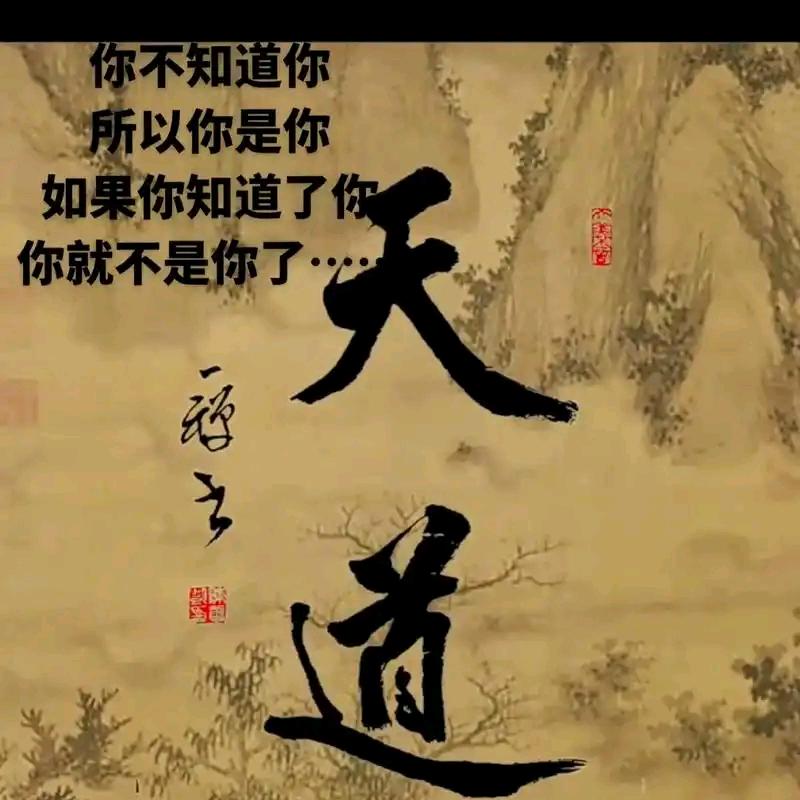 你不知道你
所以你是你
如果你知道了你
你就不是你了……
天道
一禅书